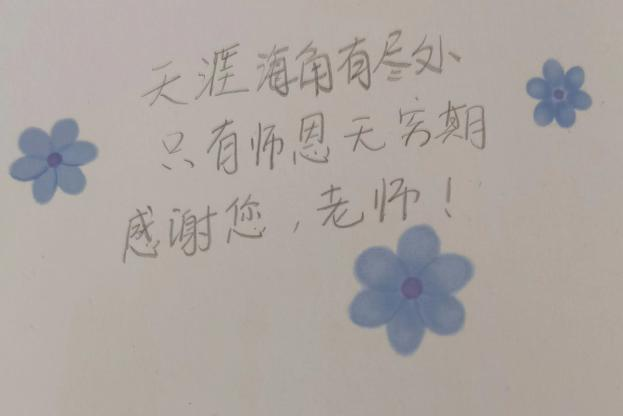 天涯海角有尽处
只有师恩无穷期
感谢您，老师！